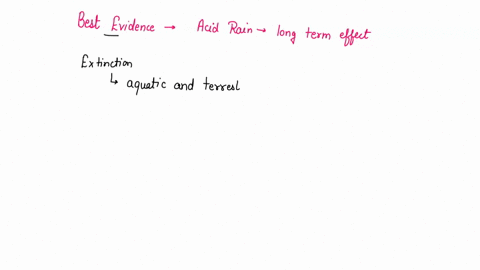 Best Evidence → Acid Rain → long term effect
Extinction
↳ aquatic and terrest